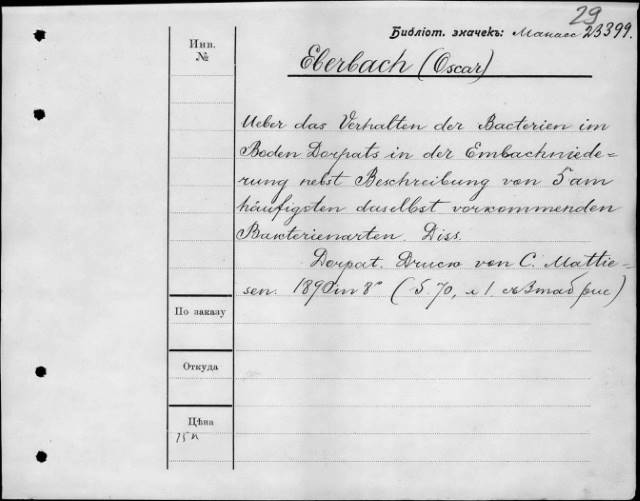 29
Библіот. значекъ: Манасс 23399.
Инв.
№
Eberbach (Oscar)
Ueber das Verhalten der Bacterien im
Boden Dorpats in der Embachniede=
rung nebst Beschreibung von 5 am
häufigsten daselbst vorkommenden
Bakterienarten. Diss.
Dorpat. Druck von C. Mattie=
sen. 1890 in 8° (S. 70, и 1. съ 3 таб рис)
По заказу
Откуда
Цѣна
75 к